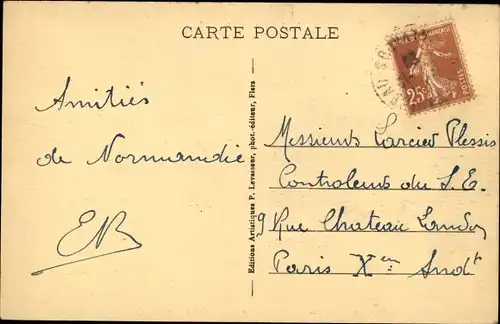 CARTE POSTALE
25c
POSTES
Amitiés
de Normandie
EB
Editions Artistiques P. Levasseur, phot.-éditeur, Flers
Messieurs Larcier Plessis
Controleurs du S.E.
9 Rue Chateau Landon
Paris Xem